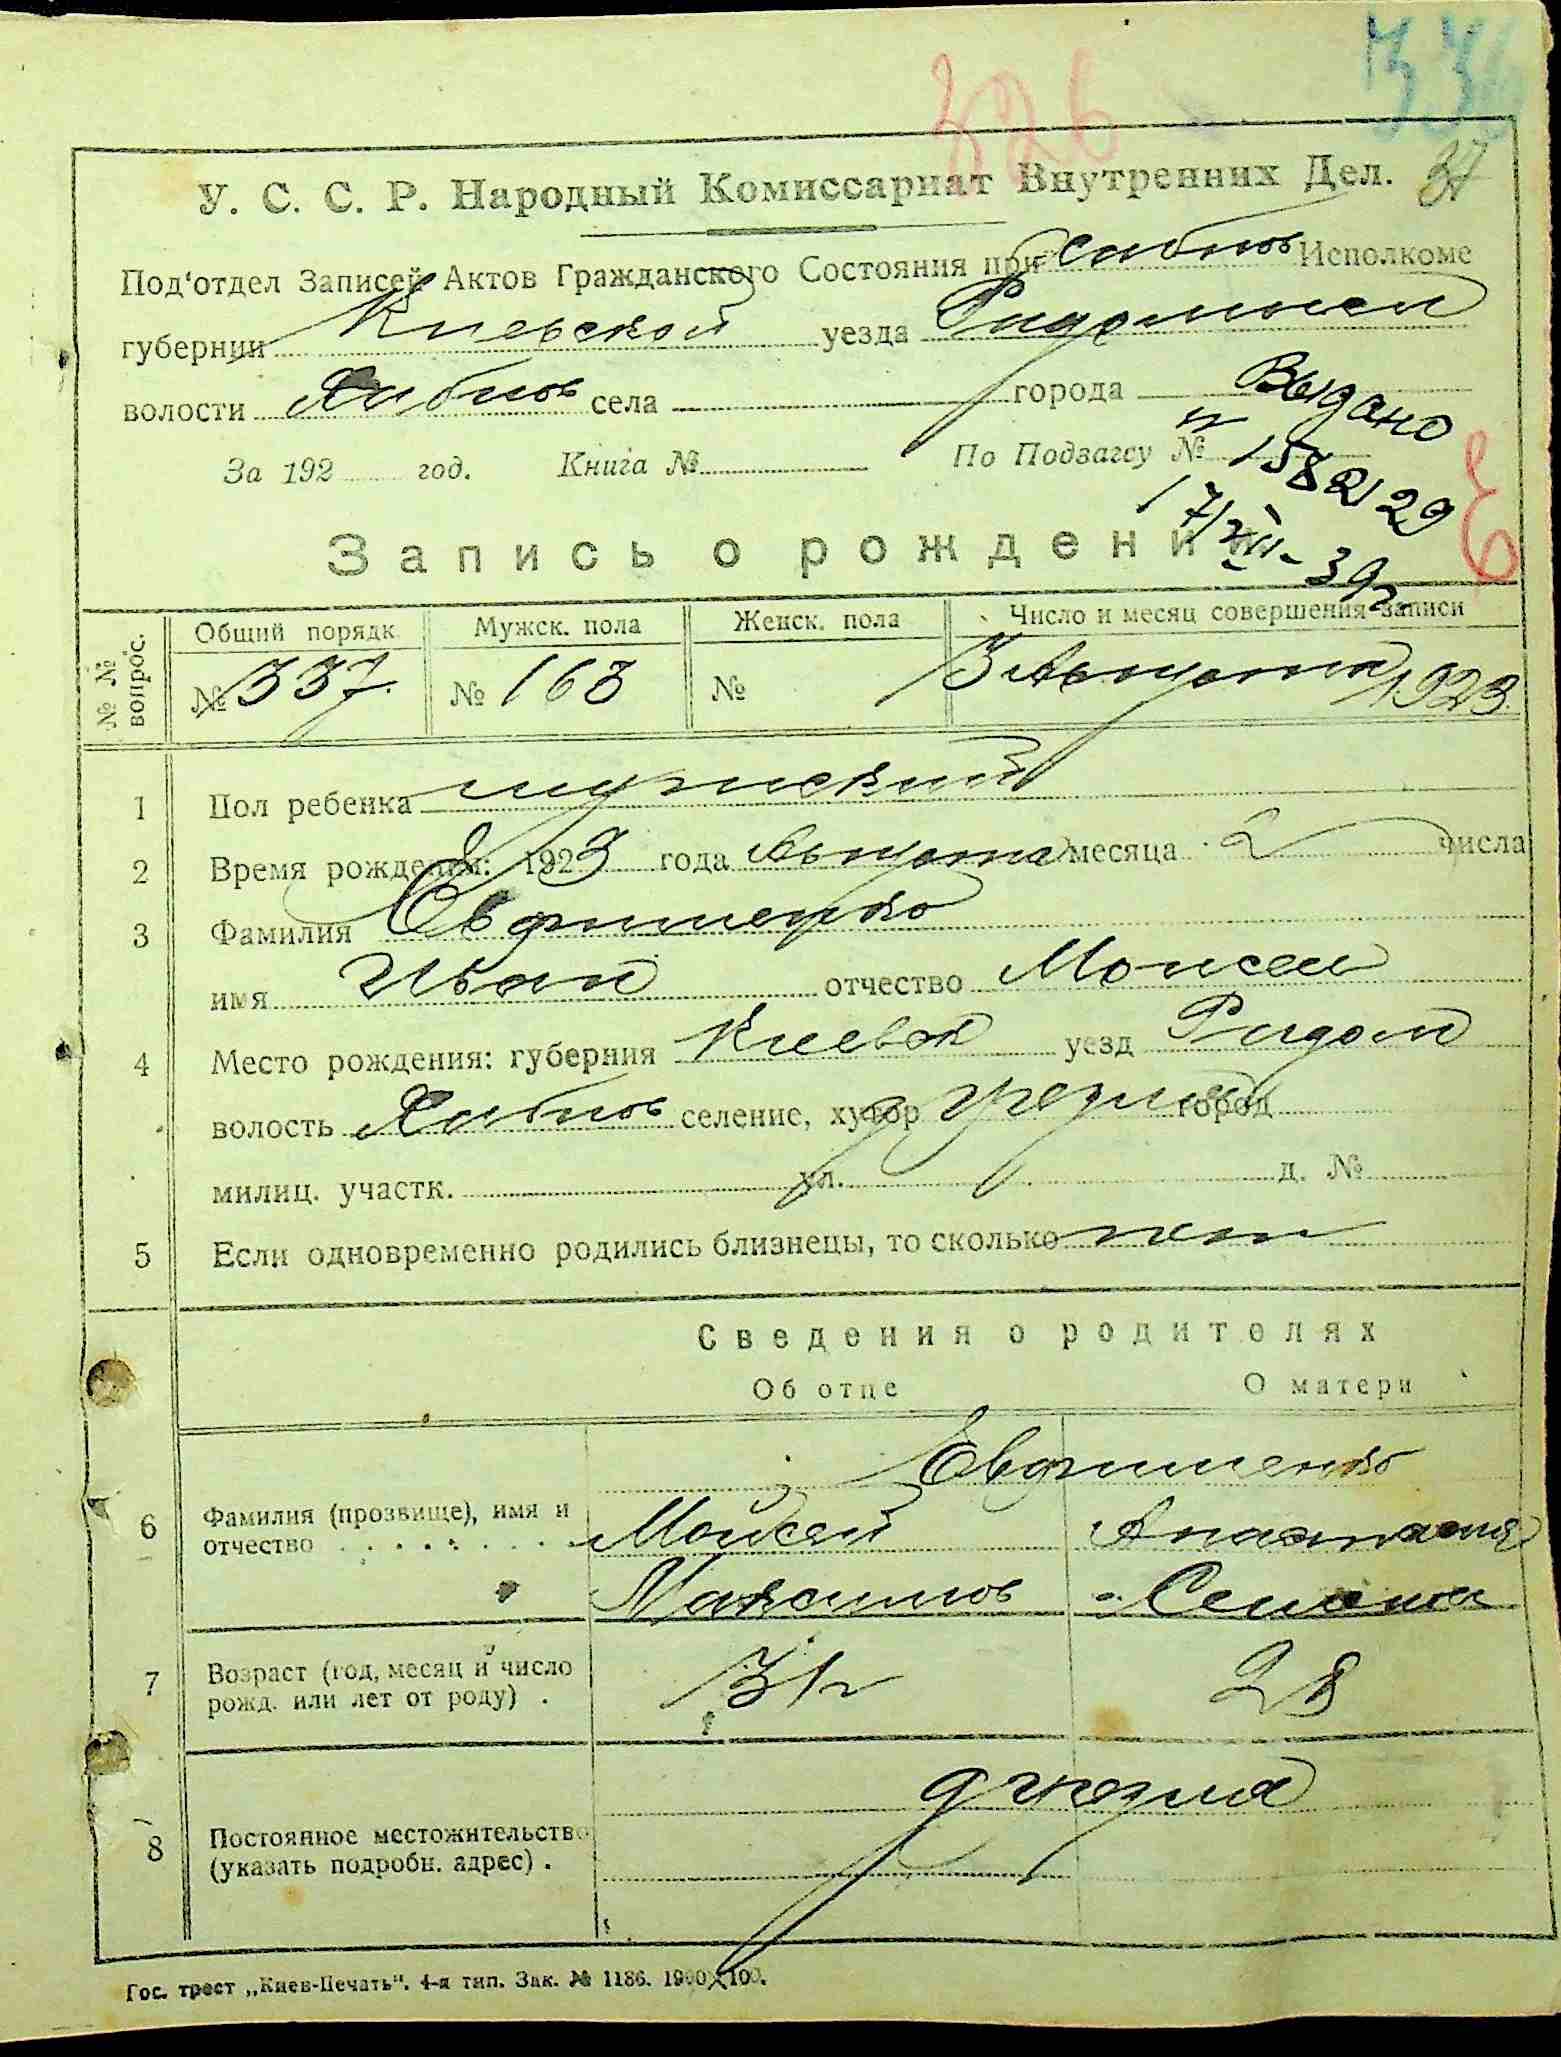 326
336
37
У. С. С. Р. Народный Комиссариат Внутренних Дел.
Под'отдел Записей Актов Гражданского Состояния при Хабнов Исполкоме
губернии Киевской уезда Радомысл
волости Хабнов села города
Выдано
За 192 год. Книга № По Подзагсу №
158 2129
17/VII-39г
Е
Запись о рождении
№№ вопрос. Общий порядк Мужск. пола Женск. пола Число и месяц совершения записи
№ 337 № 163 № 3 Августа 1923
1 Пол ребенка мужский
2 Время рождения: 1923 года Августа месяца 2 числа
3 Фамилия Евфименко
имя Иван отчество Моисеев
4 Место рождения: губерния Киевск уезд Радом
волость Хабнов селение, хутор город
милиц. участк. ул. д. №
5 Если одновременно родились близнецы, то сколько нет
Сведения о родителях
Об отце О матери
Евфименко
6 Фамилия (прозвище), имя и
отчество Моисей Анастасия
Максимов
7 Возраст (год, месяц и число
рожд. или лет от роду) . 31г 28
8 Постоянное местожительство
(указать подробн. адрес) .
Гос. трест „Киев-Печать". 4-я тип. Зак. № 1186. 1900×100.